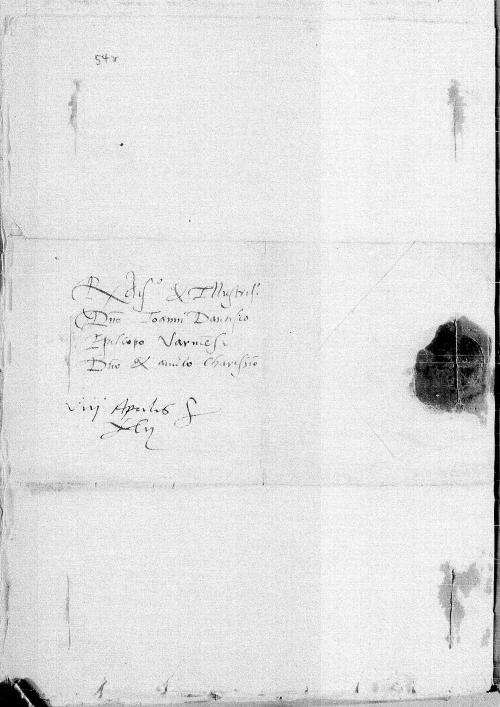 54r
Rx. Dis.º & Illustris.º
Dño Ioanni Dantisco
Episcopo Varmieñ
Dño & amico Chariss.º
VIII Aprilis
XLij